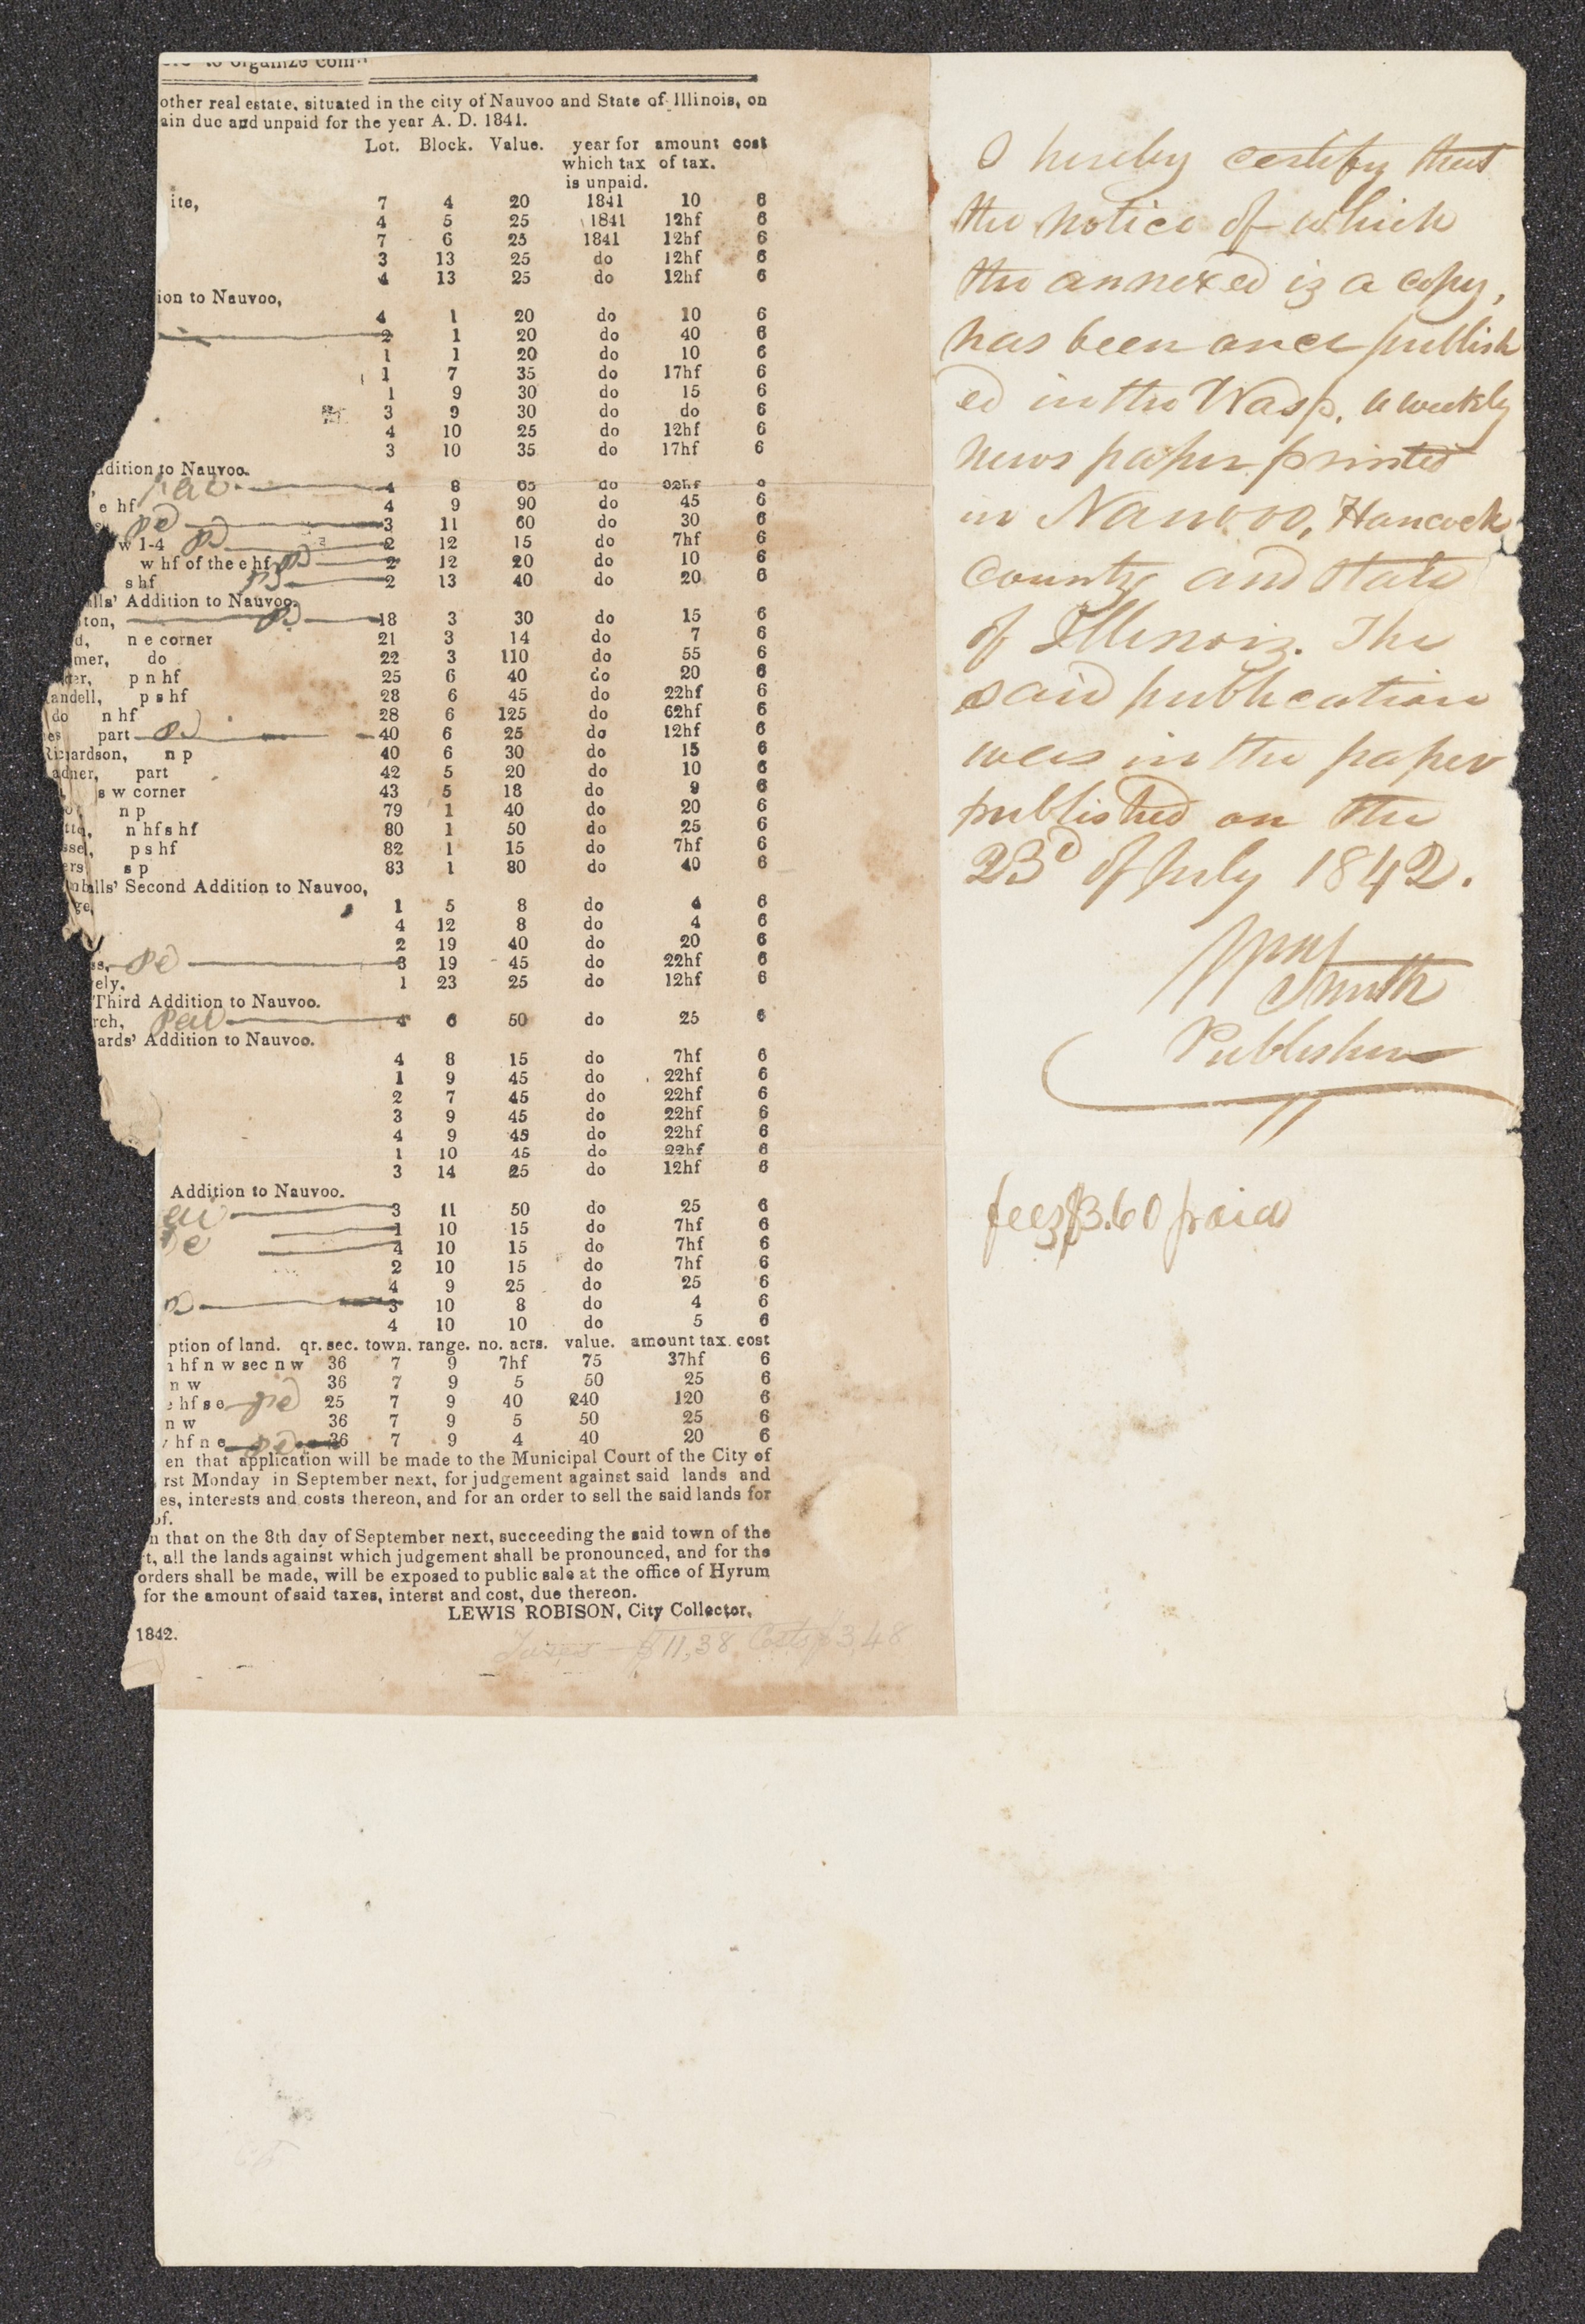 to organize com
other real estate, situated in the city of Nauvoo and State of Illinois, on
ain due and unpaid for the year A. D. 1841.
Lot. Block. Value. year for amount cost
which tax of tax.
is unpaid.
ite, 7 4 20 1841 10 6
4 5 25 1841 12hf 6
7 6 25 1841 12hf 6
3 13 25 do 12hf 6
4 13 25 do 12hf 6
ion to Nauvoo,
4 1 20 do 10 6
2 1 20 do 40 6
1 1 20 do 10 6
1 7 35 do 17hf 6
1 9 30 do 15 6
3 9 30 do do 6
4 10 25 do 12hf 6
3 10 35 do 17hf 6
dition to Nauvoo.
4 8 65 do 32hf 6
e hf 4 9 90 do 45 6
pd 3 11 60 do 30 6
w 1-4 pd 2 12 15 do 7hf 6
w hf of the e hf pd 2 12 20 do 10 6
s hf pd 2 13 40 do 20 6
lls' Addition to Nauvoo.
ton, pd 18 3 30 do 15 6
d, n e corner 21 3 14 do 7 6
mer, do 22 3 110 do 55 6
er, p n hf 25 6 40 do 20 6
andell, p s hf 28 6 45 do 22hf 6
do n hf 28 6 125 do 62hf 6
es part pd 40 6 25 do 12hf 6
Richardson, n p 40 6 30 do 15 6
adner, part 42 5 20 do 10 6
s w corner 43 5 18 do 9 6
n p 79 1 40 do 20 6
tte, n hf s hf 80 1 50 do 25 6
ssel, p s hf 82 1 15 do 7hf 6
ers s p 83 1 80 do 40 6
mballs' Second Addition to Nauvoo,
ge, 1 5 8 do 4 6
4 12 8 do 4 6
2 19 40 do 20 6
ss, pd 3 19 45 do 22hf 6
ely. 1 23 25 do 12hf 6
Third Addition to Nauvoo.
rch, paid 4 6 50 do 25 6
ards' Addition to Nauvoo.
4 8 15 do 7hf 6
1 9 45 do 22hf 6
2 7 45 do 22hf 6
3 9 45 do 22hf 6
4 9 45 do 22hf 6
1 10 45 do 22hf 6
3 14 25 do 12hf 6
Addition to Nauvoo.
3 11 50 do 25 6
1 10 15 do 7hf 6
4 10 15 do 7hf 6
2 10 15 do 7hf 6
4 9 25 do 25 6
3 10 8 do 4 6
4 10 10 do 5 6
ption of land. qr. sec. town. range. no. acrs. value. amount tax. cost
hf n w sec n w 36 7 9 7hf 75 37hf 6
n w 36 7 9 5 50 25 6
e hf s e pd 25 7 9 40 240 120 6
n w 36 7 9 5 50 25 6
hf n e pd 36 7 9 4 40 20 6
en that application will be made to the Municipal Court of the City of
rst Monday in September next, for judgement against said lands and
es, interests and costs thereon, and for an order to sell the said lands for
of.
n that on the 8th day of September next, succeeding the said town of the
rt, all the lands against which judgement shall be pronounced, and for the
orders shall be made, will be exposed to public sale at the office of Hyrum
for the amount of said taxes, interst and cost, due thereon.
LEWIS ROBISON, City Collector,
1842.
Taxes - $11,38 Costs $3,48
I hereby certify that
the notice of which
the annexed is a copy,
has been once publish
ed in the Wasp, a weekly
news paper printed
in Nauvoo, Hancock
County and State
of Illinois. The
said publication
was in the paper
published on the
23d of July 1842.
Wm
Smith
Publisher
fees $3.60 paid